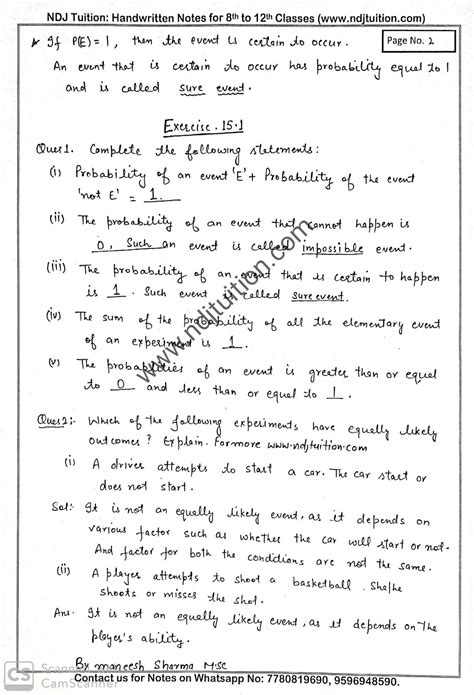 NDJ Tuition: Handwritten Notes for 8th to 12th Classes (www.ndjtuition.com)
Page No. 2
* If P(E) = 1, then the event is certain to occur.
An event that is certain to occur has probability equal to 1
and is called sure event.
Exercise. 15.1
Ques1. Complete the following statements:
(i) Probability of an event 'E' + Probability of the event
'not E' = 1.
(ii) The probability of an event that cannot happen is
0, Such an event is called impossible event.
(iii) The probability of an event that is certain to happen
is 1. Such event is called sure event.
(iv) The sum of the probability of all the elementary event
of an experiment is 1.
(v) The probabilities of an event is greater than or equal
to 0 and less than or equal to 1.
www.ndjtuition.com
Ques2:- Which of the following experiments have equally likely
outcomes? Explain. For more www.ndjtuition.com
(i) A driver attempts to start a car. The car start or
does not start.
Sol:- It is not an equally likely event, as it depends on
various factor such as whether the car will start or not.
And factor for both the conditions are not the same.
(ii) A player attempts to shoot a basketball. She/he
shoots or misses the shot.
Ans- It is not an equally likely event, as it depends on the
player's ability.
By maneesh Sharma M.Sc
CS
CamScanner
Contact us for Notes on Whatsapp No: 7780819690, 9596948590.